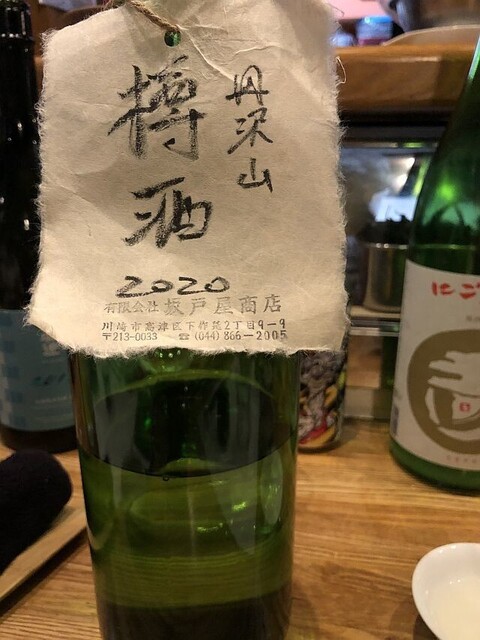 丹沢山
樽酒
2020
有限会社 坂戸屋商店
川崎市高津区下作延2丁目9-9
〒213-0033 ☎(044)866-2005
にご